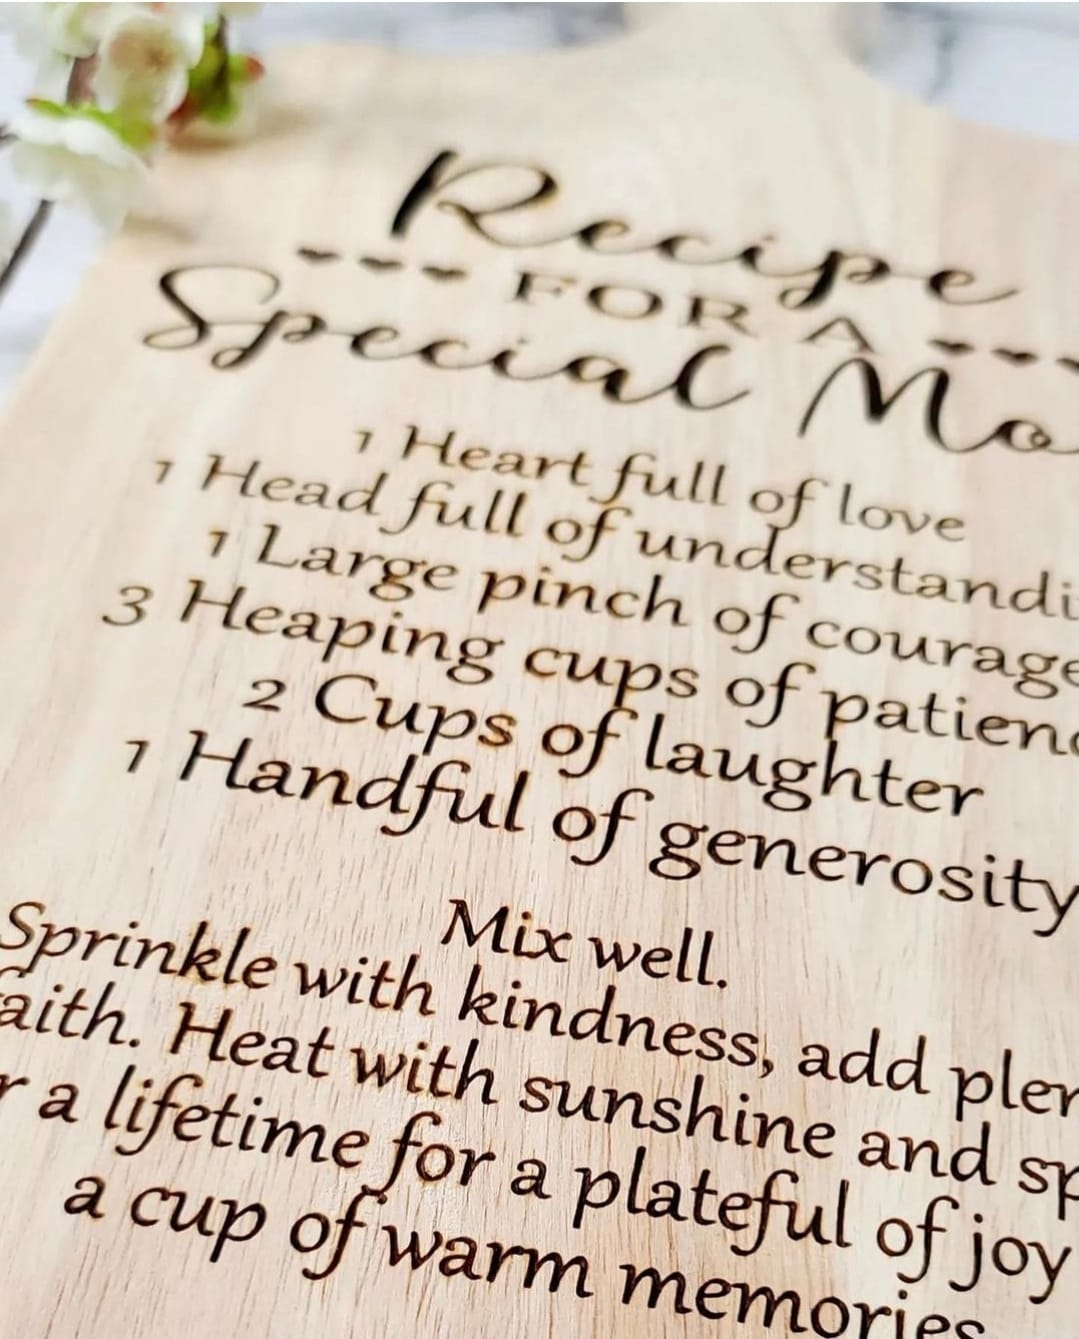 Recipe
FOR A
Special Mo
1 Heart full of love
1 Head full of understandi
1 Large pinch of courage
3 Heaping cups of patienc
2 Cups of laughter
1 Handful of generosity
Mix well.
Sprinkle with kindness, add plen
faith. Heat with sunshine and sp
r a lifetime for a plateful of joy
a cup of warm memories